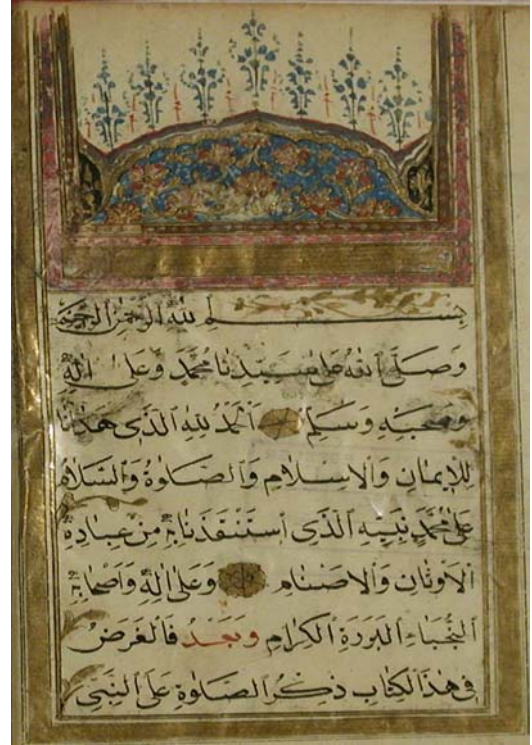 بِسْمِ اللهِ الرَّحْمٰنِ الرَّحِيمِ
وَصَلَّى اللهُ عَلٰى سَيِّدِنَا مُحَمَّدٍ وَعَلٰى اٰلِهِ
وَصَحْبِهِ وَسَلَّمَ اَلْحَمْدُ لِلّٰهِ الَّذِى هَدٰنَا
لِلْاِيمَانِ وَالْاِسْلَامِ وَالصَّلٰوةُ وَالسَّلَامُ
عَلٰى مُحَمَّدٍ نَبِيِّهِ الَّذِى اسْتَنْقَذَنَا بِهِ مِنْ عِبَادَةِ
الْاَوْثَانِ وَالْاَصْنَامِ وَعَلٰى اٰلِهِ وَاَصْحَابِهِ
النُّجَبَاءِ الْبَرَرَةِ الْكِرَامِ وَبَعْدُ فَالْغَرَضُ
فِى هٰذَا الْكِتَابِ ذِكْرُ الصَّلٰوةِ عَلَى النَّبِىِّ